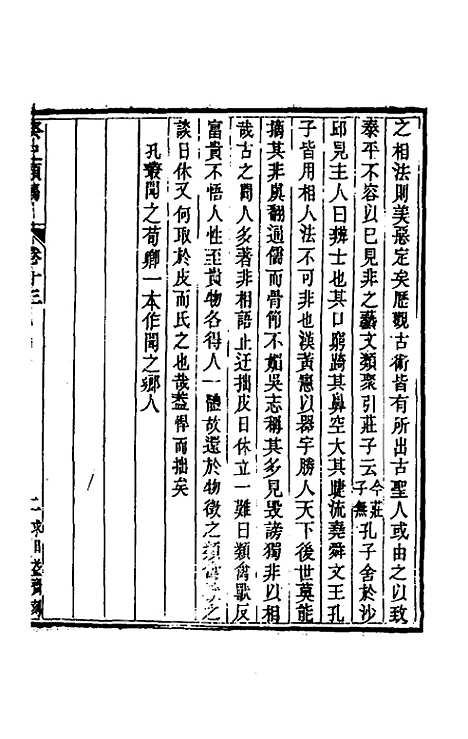 之相法則美惡定矣歷觀古術皆有所出古聖人或由之以致
泰平不容以已見非之藝文類聚引莊子云今莊子無孔子舍於沙
邱見主人曰辨士也其口窮踦其鼻空大其睫流堯舜文王孔
子皆用相人法不可非也漢黃憲以器宇勝人天下後世莫能
摘其非虞翻通儒而骨節不媚吳志稱其多見毀謗獨非以相
哉古之問人多著非相語止迂拙皮日休立一難日類禽獸反
富貴不悟人性至貴物各得人一體故還於物徵之類
談日休又何取於皮而氏之也哉葢悍而拙矣
孔叢聞之荀卿一本作聞之鄉人
癸巳類稿
卷十三
二求日益齋刻